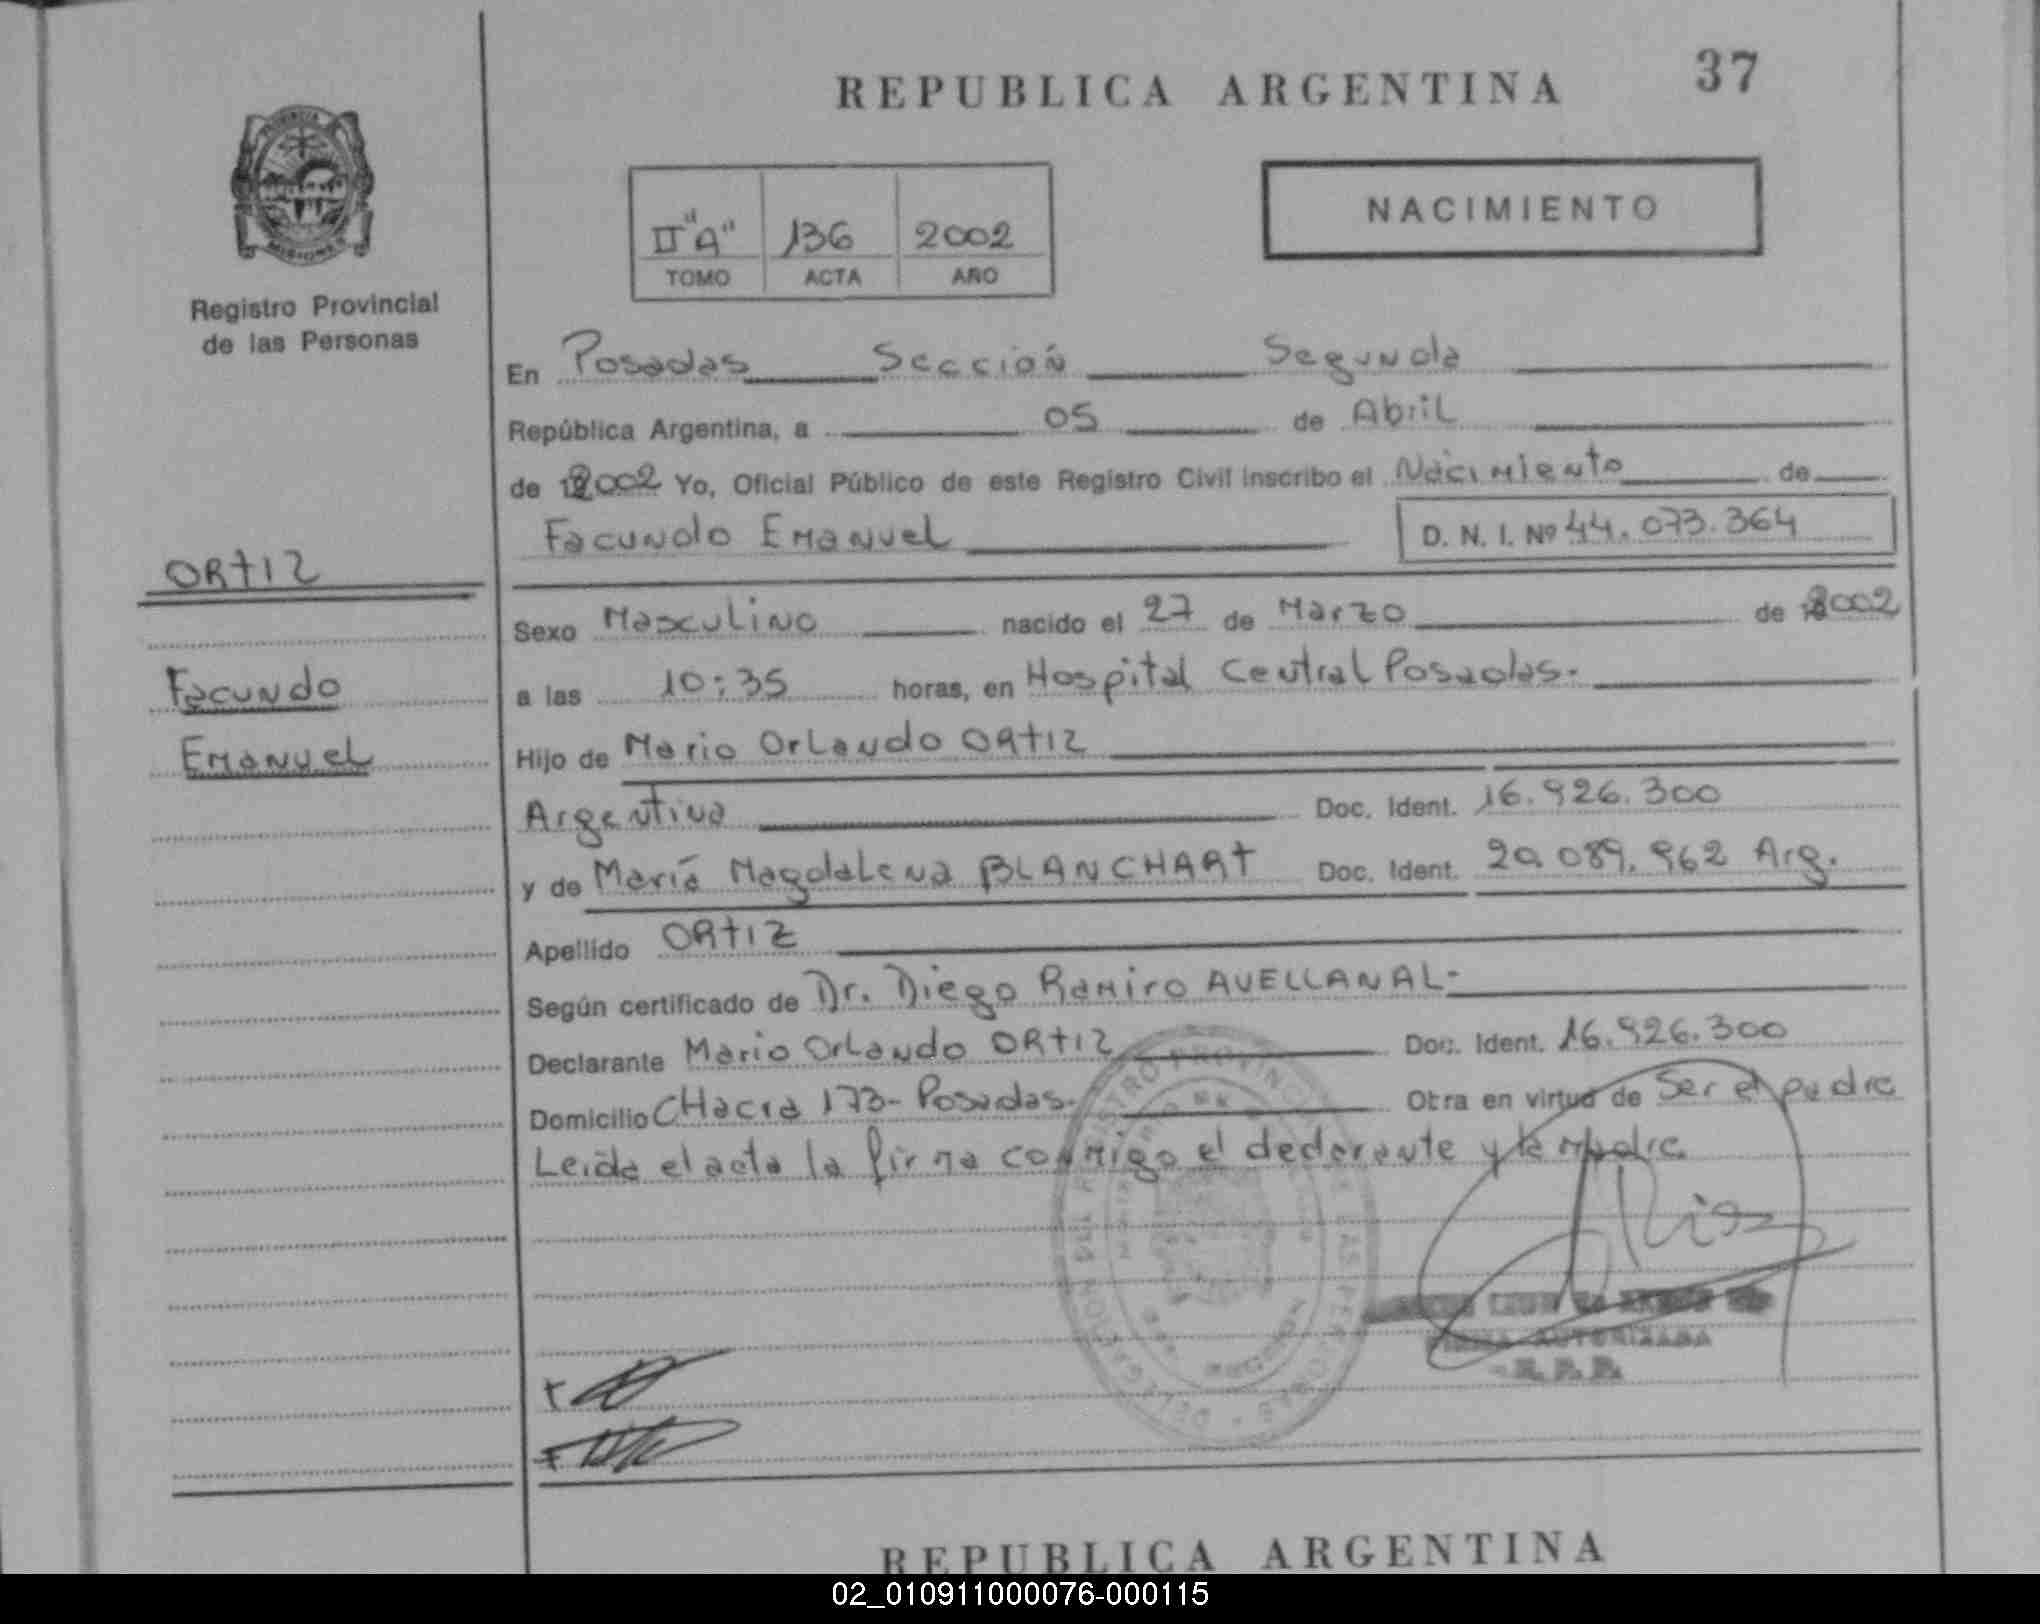 REPUBLICA ARGENTINA 37
II "A" 136 2002
TOMO ACTA AÑO
NACIMIENTO
PROVINCIA
MISIONES
Registro Provincial
de las Personas
En Posadas Sección Segunda
República Argentina, a 05 de Abril
de 2002 Yo, Oficial Público de este Registro Civil inscribo el Nacimiento de
Facundo Emanuel D. N. I. Nº 44.073.364
ORtIZ
Sexo Masculino nacido el 27 de Marzo de 2002
Facundo
a las 10:35 horas, en Hospital Central Posadas.
Emanuel
Hijo de Mario Orlando ORtIZ
Argentina Doc. Ident. 16.926.300
y de María Magdalena BLANCHARt Doc. Ident. 20.089.962 Arg.
Apellido ORtIZ
Según certificado de Dr. Diego Ramiro AVELLANAL-
Declarante Mario Orlando ORtIZ Doc. Ident. 16.926.300
Domicilio CHacra 173- Posadas. Otra en virtud de Ser el padre
Leida el acta la firma conmigo el declarante y la madre.
DELEGACION DEL REGISTRO PROVINCIAL DE LAS PERSONAS
FIRMA AUTORIZADA
R. P. P.
REPUBLICA ARGENTINA
02_010911000076-000115